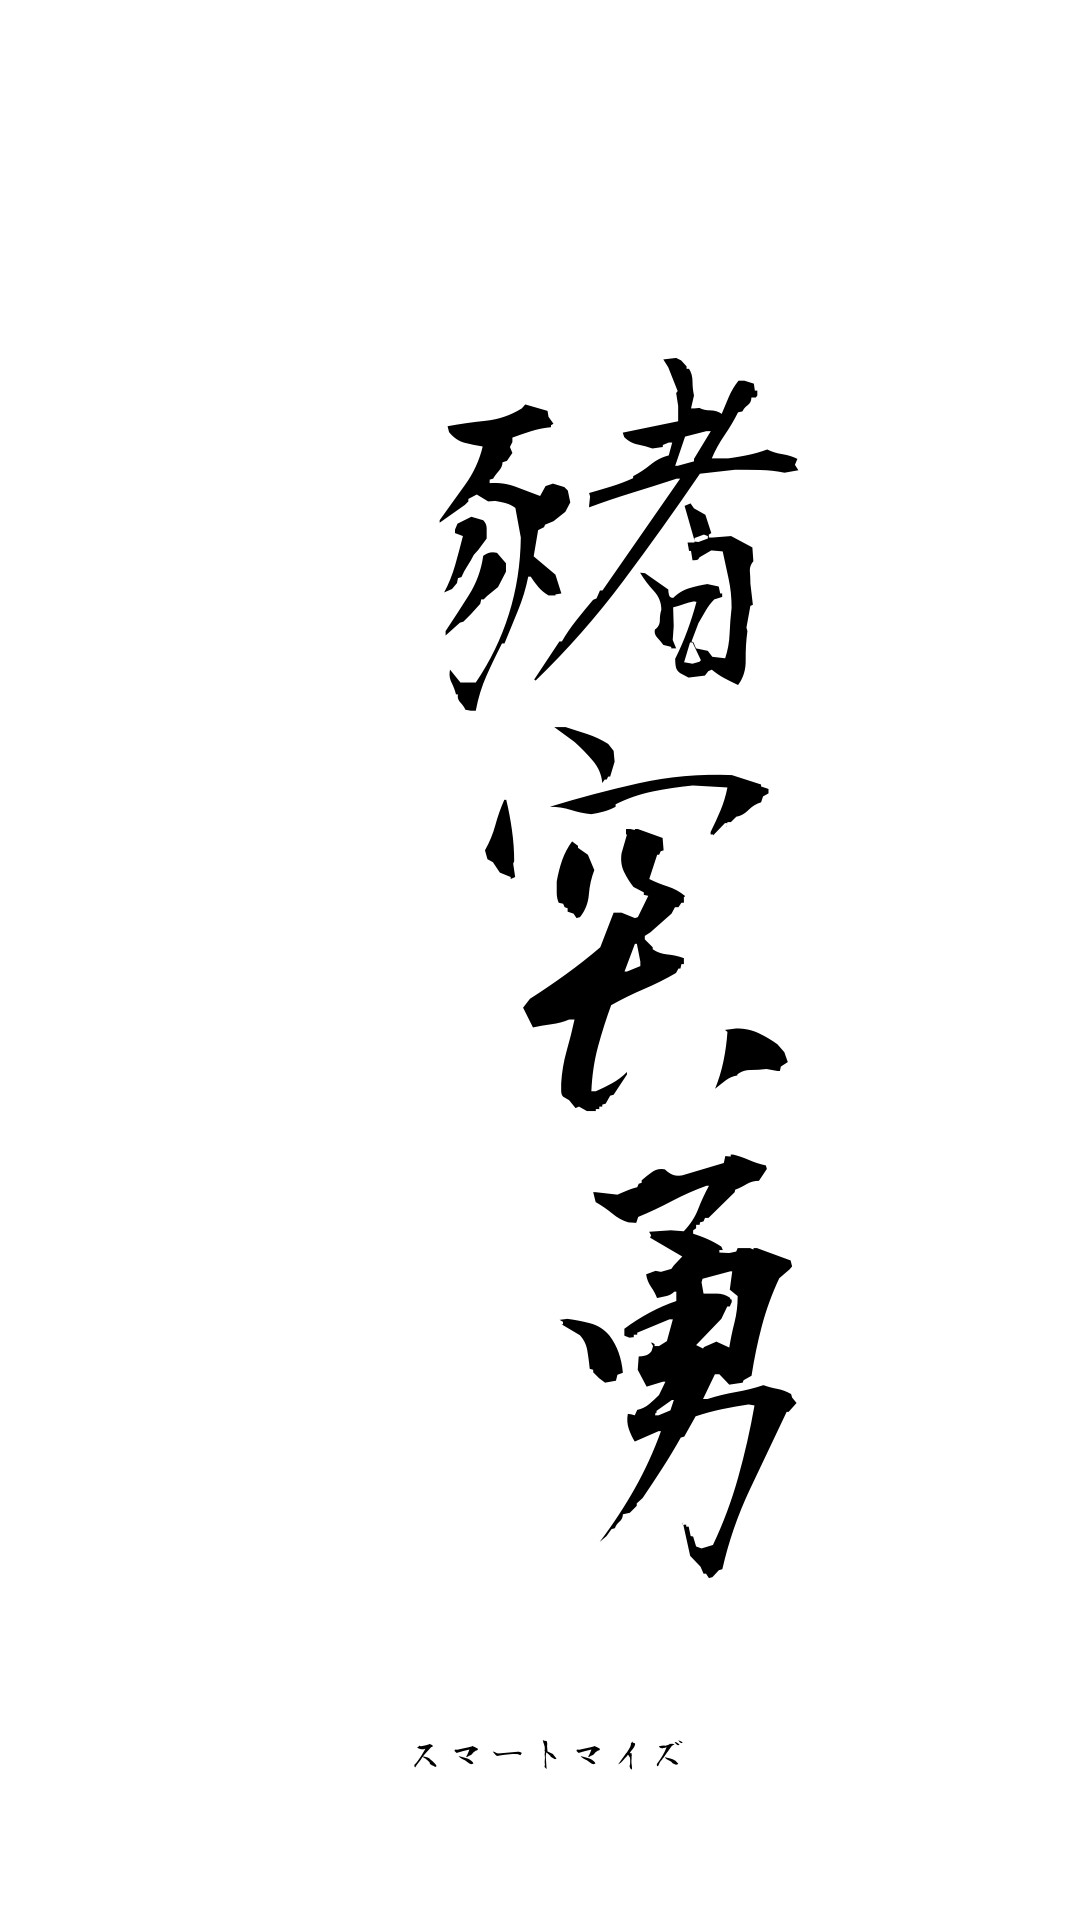 豬突勇
スマートマイズ